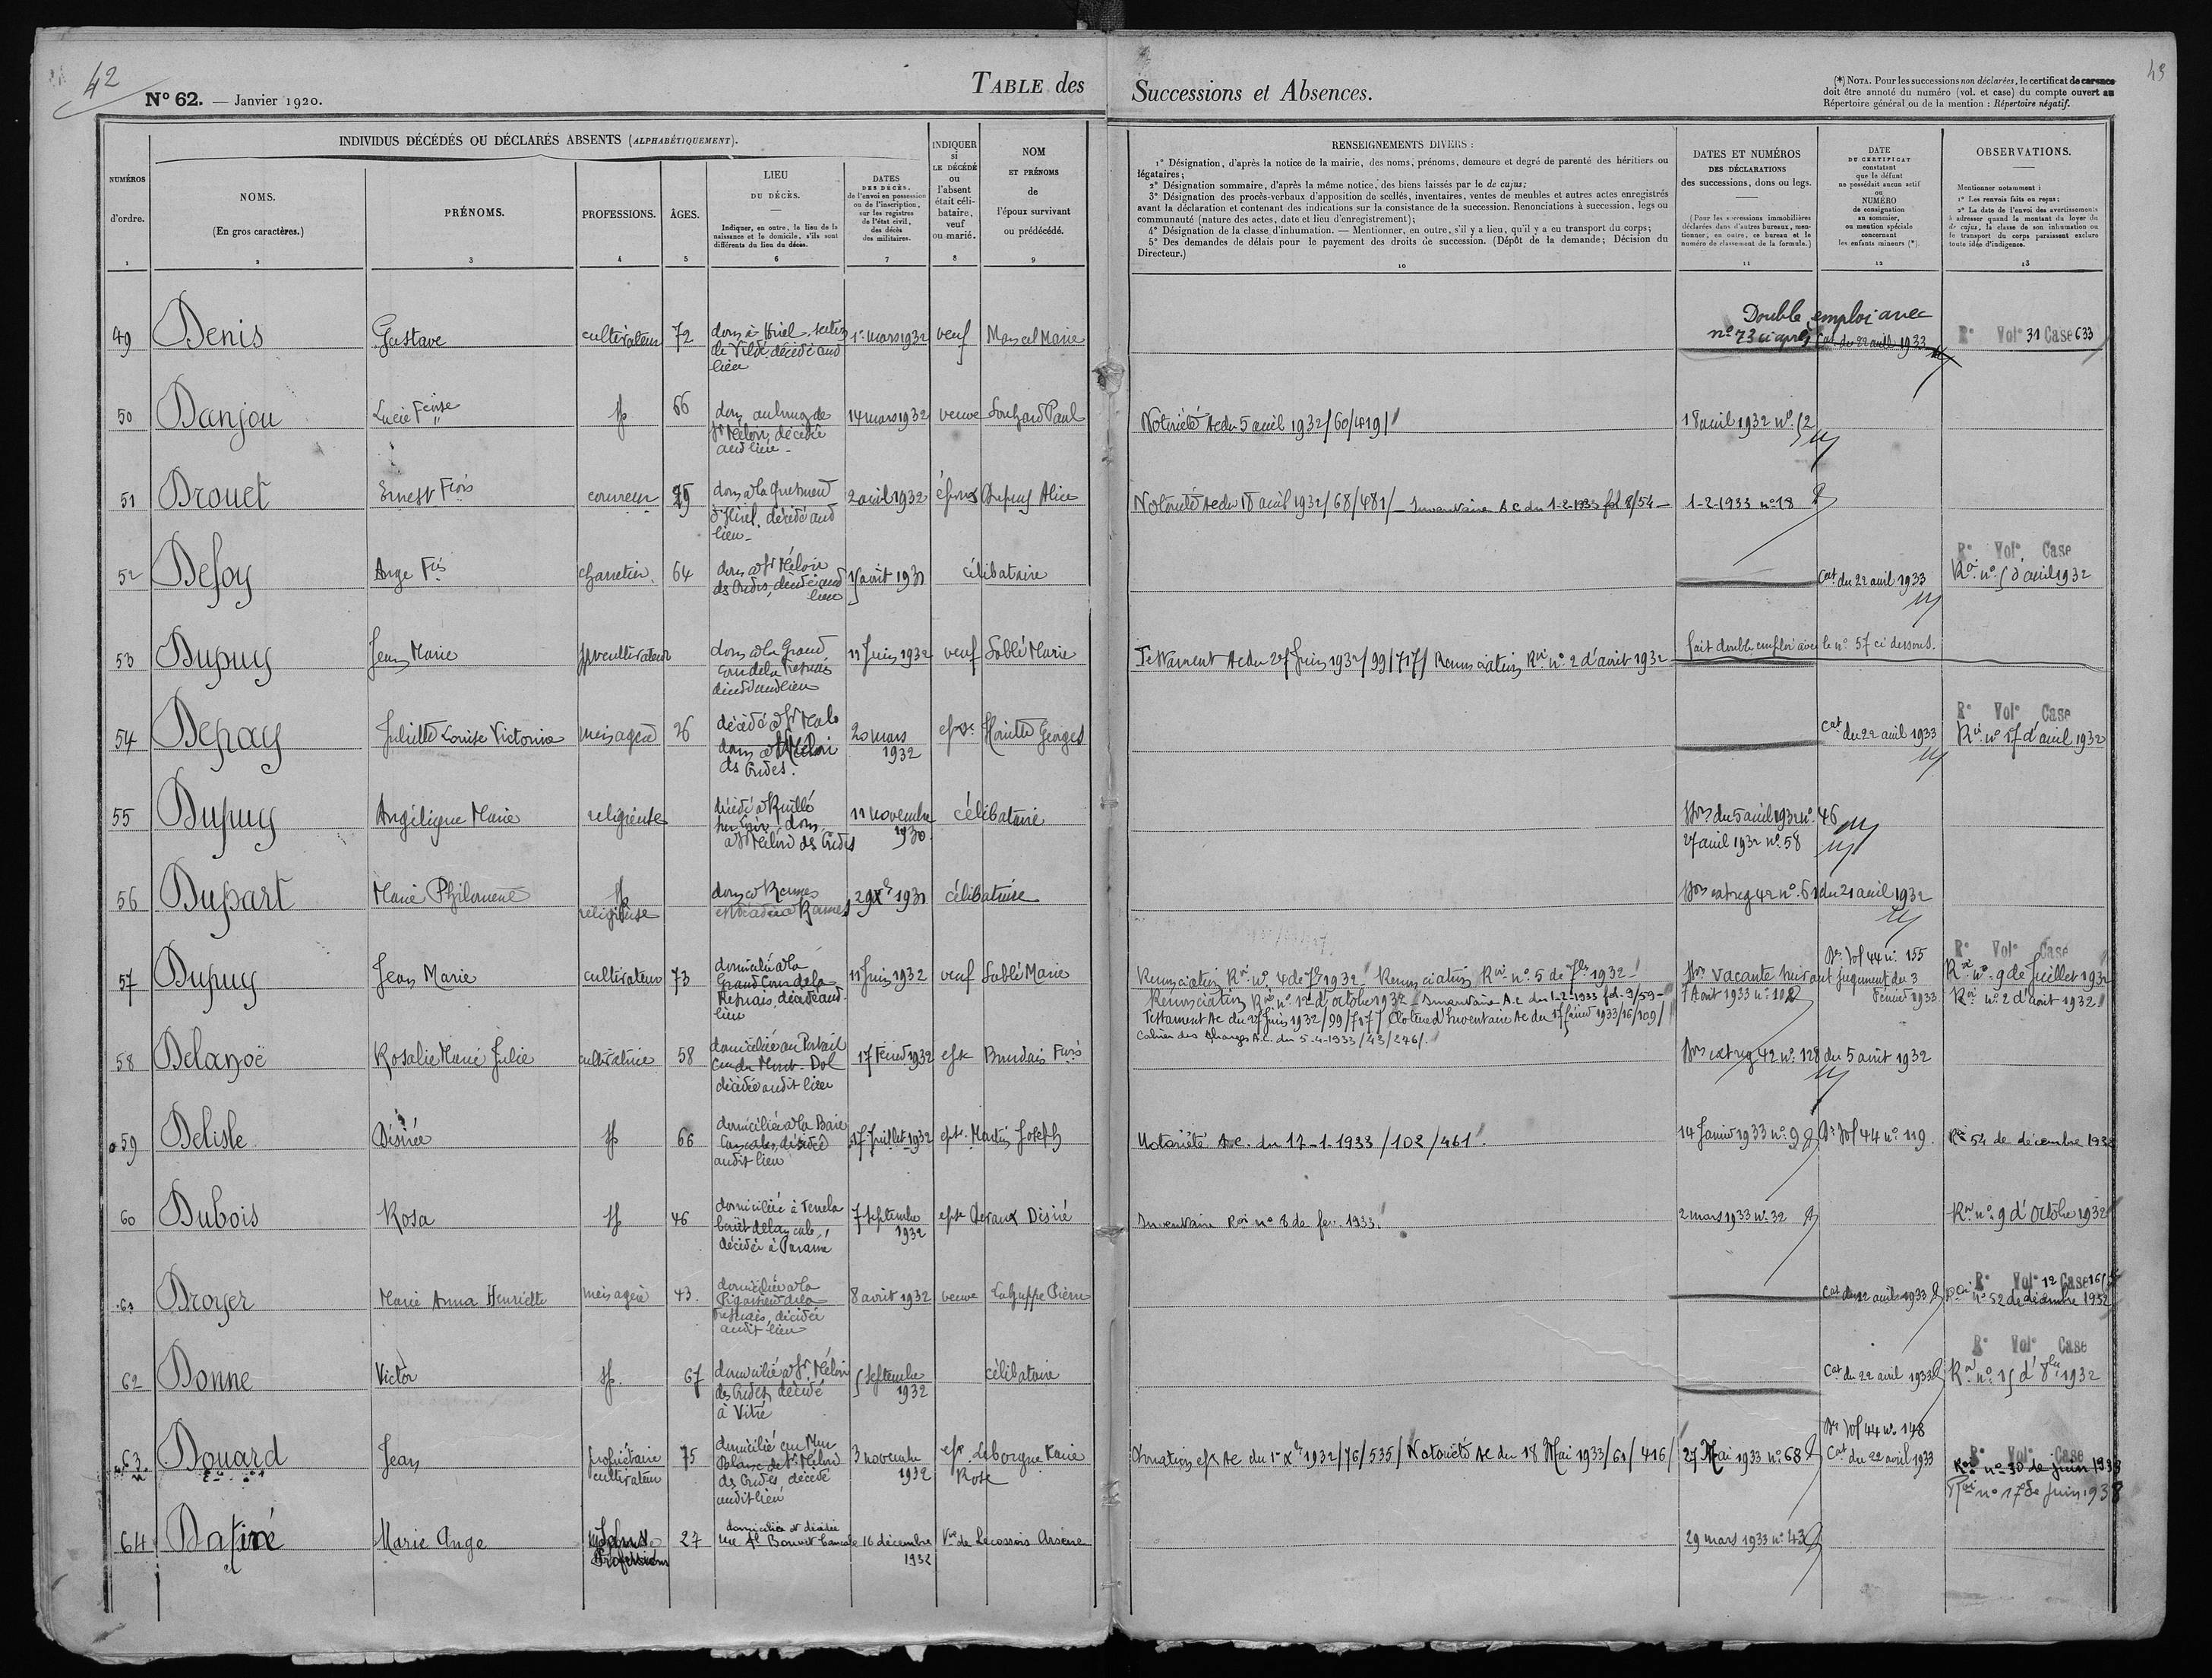 42
43
N° 62. — Janvier 1920.
TABLE des
Successions et Absences.
(*) NOTA. Pour les successions non déclarées, le certificat de carence
doit être annoté du numéro (vol. et case) du compte ouvert au
Répertoire général ou de la mention : Répertoire négatif.
INDIVIDUS DÉCÉDÉS OU DÉCLARÉS ABSENTS (ALPHABÉTIQUEMENT).
NUMÉROS
d'ordre.
1
NOMS.
(En gros caractères.)
2
PRÉNOMS.
3
PROFESSIONS.
4
ÂGES.
5
LIEU
DU DÉCÈS.
Indiquer, en outre, le lieu de la
naissance et le domicile, s'ils sont
différents du lieu du décès.
6
DATES
DES DÉCÈS,
de l'envoi en possession
ou de l'inscription,
sur les registres
de l'état civil,
des décès
des militaires.
7
INDIQUER
si
LE DÉCÉDÉ
ou
l'absent
était céli-
bataire,
veuf
ou marié.
8
NOM
ET PRÉNOMS
de
l'époux survivant
ou prédécédé.
9
RENSEIGNEMENTS DIVERS :
1° Désignation, d'après la notice de la mairie, des noms, prénoms, demeure et degré de parenté des héritiers ou
légataires;
2° Désignation sommaire, d'après la même notice, des biens laissés par le de cujus;
3° Désignation des procès-verbaux d'apposition de scellés, inventaires, ventes de meubles et autres actes enregistrés
avant la déclaration et contenant des indications sur la consistance de la succession. Renonciations à succession, legs ou
communauté (nature des actes, date et lieu d'enregistrement);
4° Désignation de la classe d'inhumation. — Mentionner, en outre, s'il y a lieu, qu'il y a eu transport du corps;
5° Des demandes de délais pour le payement des droits de succession. (Dépôt de la demande; Décision du
Directeur.)
10
DATES ET NUMÉROS
DES DÉCLARATIONS
des successions, dons ou legs.
(Pour les successions immobilières
déclarées dans d'autres bureaux, men-
tionner, en outre, ce bureau et le
numéro de classement de la formule.)
11
DATE
DU CERTIFICAT
constatant
que le défunt
ne possédait aucun actif
ou
NUMÉRO
de consignation
au sommier,
ou mention spéciale
concernant
les enfants mineurs (*).
12
OBSERVATIONS.
Mentionner notamment :
1° Les renvois faits ou reçus;
2° La date de l'envoi des avertissements
à adresser quand le montant du loyer du
de cujus, la classe de son inhumation ou
le transport du corps paraissent exclure
toute idée d'indigence.
13
49 Denis Gustave cultivateur 72 1er mars 1932 veuf Marcel Marie
de Vildé, décédé aud
lieu
Double emploi avec
n° 73 ci après Cat du 22 avril 1933 R° Vol° 31 Case 633
50 Danjou Lucie Fçoise sp 66 dom au bourg de 14 mars 1932 veuve Paul
St Méloir, décédée
aud lieu
Notoriété Ac du 5 avril 1932/60/419/ 18 avril 1932 n° 12
51 Drouet Ernest Fçois couvreur 2 avril 1932 époux Dupuy Alice
d'Hirel, décédé aud
lieu
Notoriété Ac du 18 avril 1932/68/481/ Inventaire A C du 1-2-1933 fol 8/54 1-2-1933 n° 18
52 Defoy Ange Fçis charretier 64 dom à St Méloir 15 août 1931 célibataire
des Ondes, décédé aud
lieu
Cat du 22 avril 1933 R° Vol° Case
Roi n° 5 d'avril 1932
53 Dupuy Jean Marie cultivateur dom à la Grand 11 Juin 1932 veuf Sablé Marie
Cour de la Fresnais
décédé aud lieu
Testament Ac du 27 Juin 1932/99/717/ Renonciation Roi n° 2 d'août 1932 fait double emploi avec le n° 57 ci dessous.
54 Depay Juliette Louise Victorine ménagère 26 décédée à St Malo 20 mars 1932 epse Georges
dom à St Méloir
des Ondes.
Cat du 22 avril 1933 R° Vol° Case
Roi n° 17 d'avril 1932
55 Dupuy Angélique Marie religieuse décédée à Ruillé 11 novembre 1930 célibataire
sur Loir, dom
à St Méloir des Ondes
du 5 avril 1932 n° 46
27 avril 1932 n° 58
56 Dupart Marie Philomène sp religieuse dom à Rennes 29 Xbre 1931 célibataire
et décédée à Rennes
ext reg 42 n° 61 du 21 avril 1932
57 Dupuy Jean Marie cultivateur 73 domicilié à la 11 Juin 1932 veuf Sablé Marie
Grand Cour de la
Fresnais, décédé aud.
lieu
Renonciation Roi n° 4 de 7bre 1932 / Renonciation Roi n° 5 de 7bre 1932
Renonciation Roi n° 12 d'octobre 1932 Inventaire A.C du 1-2-1933 fol. 9/59
Testament Ac du 27 Juin 1932/99/717/ Cloture d'Inventaire Ac du 17 février 1933/16/109/
Cahier des Charges A.C. du 5-4-1933/43/246/.
Vol 44 n° 155
vacante suivant jugement du 3
7 Août 1933 n° 102 Février 1933
R° Vol° Case
Roi n° 9 de Juillet 1932
Roi n° 2 d'août 1932
58 Delanoë Rosalie Marie Julie cultivatrice 58 domiciliée au Portail 17 Février 1932 epse Fçois
Cne du Mont-Dol
décédée audit lieu
ext reg 42 n° 128 du 5 août 1932
59 Delisle Désirée sp 66 domiciliée à la Baie 17 Juillet 1932 epse Martin Joseph
Cancale, décédée
audit lieu
Notoriété A.C. du 17-1-1933/102/461. 14 Janvier 1933 n° 9 Vol 44 n° 119 Roi 54 de décembre 1932
60 Dubois Rosa sp 46 domiciliée à 7 septembre 1932 epse Désiré
décédée à Paramé
Inventaire Roi n° 8 de fev. 1933. 2 mars 1933 n° 32 Roi n° 9 d'Octobre 1932
61 Droyer Marie Anna Henriette ménagère 43. domiciliée à la 8 avril 1932 veuve Lahuppe Pierre
Fresnais, décédée
audit lieu
Cat du 22 avril 1933 R° Vol° 12 Case
n° 52 de décembre 1932
62 Donne Victor sp. 67 domicilié à St Méloir 5 septembre 1932 célibataire
des Ondes, décédé
à Vitré
Cat du 22 avril 1933 R° Vol° Case
Roi n° 15 d'8bre 1932
63 Douard Jean propriétaire cultivateur 75 domicilié au Mur 3 novembre 1932 epx Leborgne Marie Rose
Blanc de St Méloir
des Ondes, décédé
audit lieu
Donation epx Ac du 1er Xbre 1932/76/535/ Notoriété Ac du 18 Mai 1933/61/416/ 27 Mai 1933 n° 68 Vol 44 n° 148
Cat du 22 avril 1933 R° Vol° Case
Roi n° 30 de juin 1933
Roi n° 17 de juin 1938
64 Marie Ange 27 domiciliée et décédée 16 décembre 1932 Vve de Lecossois Arsène
rue Al Bonnet Cancale
29 mars 1933 n° 43